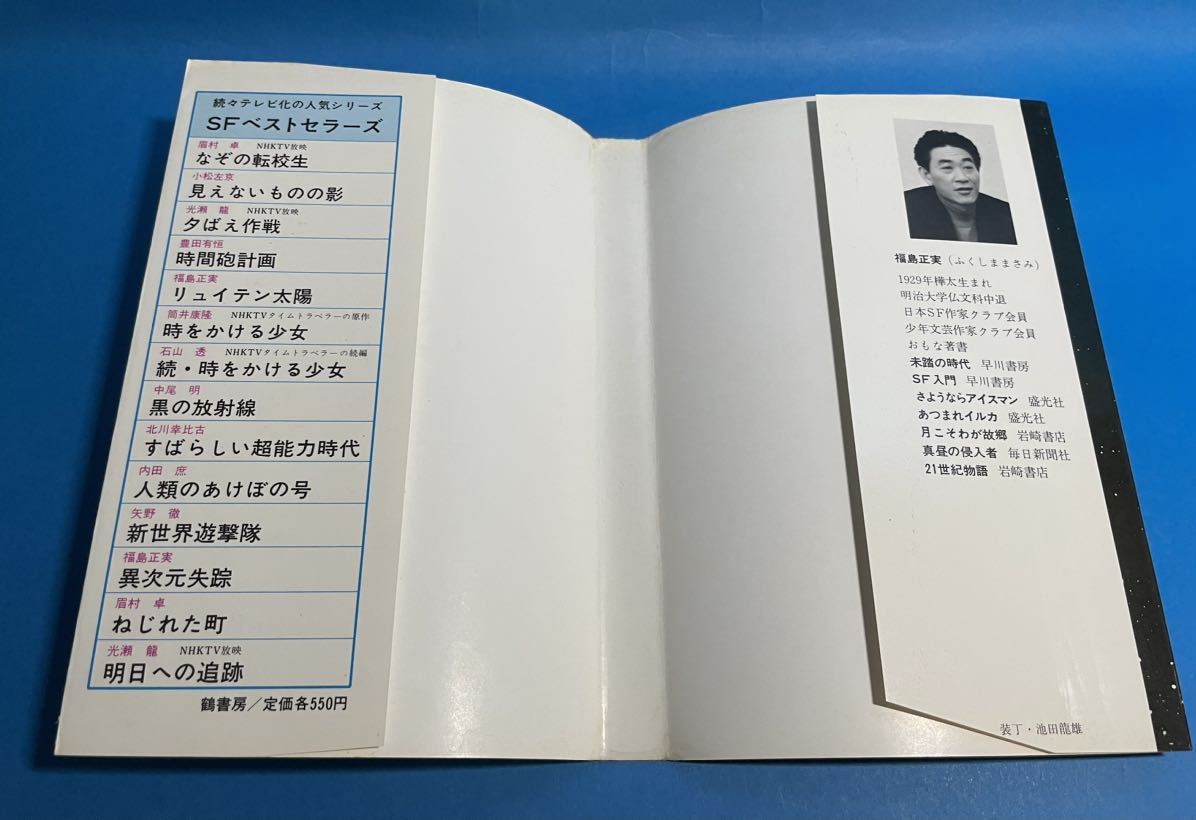 続々テレビ化の人気シリーズ
SFベストセラーズ
眉村 卓 NHKTV放映
なぞの転校生
小松左京
見えないものの影
光瀬 龍 NHKTV放映
夕ばえ作戦
豊田有恒
時間砲計画
福島正実
リュイテン太陽
筒井康隆 NHKTVタイムトラベラーの原作
時をかける少女
石山 透 NHKTVタイムトラベラーの続編
続・時をかける少女
中尾 明
黒の放射線
北川幸比古
すばらしい超能力時代
内田 庶
人類のあけぼの号
矢野 徹
新世界遊撃隊
福島正実
異次元失踪
眉村 卓
ねじれた町
光瀬 龍 NHKTV放映
明日への追跡
鶴書房/定価各550円
福島正実(ふくしままさみ)
1929年樺太生まれ
明治大学仏文科中退
日本SF作家クラブ会員
少年文芸作家クラブ会員
おもな著書
未踏の時代 早川書房
SF入門 早川書房
さようならアイスマン 盛光社
あつまれイルカ 盛光社
月こそわが故郷 岩崎書店
真昼の侵入者 毎日新聞社
21世紀物語 岩崎書店
装丁・池田龍雄